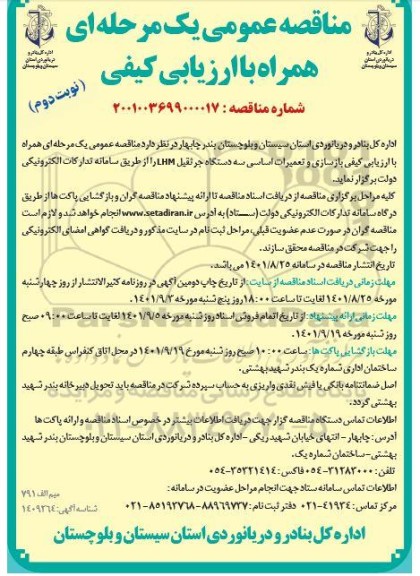 مناقصه عمومی یک مرحله ای
همراه با ارزیابی کیفی
(نوبت دوم)
اداره کل بنادر و دریانوردی استان سیستان و بلوچستان
اداره کل بنادر و دریانوردی استان سیستان و بلوچستان
شماره مناقصه : ۲۰۰۱۰۰۳۶۹۹۰۰۰۰۱۷
اداره کل بنادر و دریانوردی استان سیستان و بلوچستان بندر چابهار در نظر دارد مناقصه عمومی یک مرحله ای همراه
با ارزیابی کیفی بازسازی و تعمیرات اساسی سه دستگاه جرثقیل LHM را از طریق سامانه تدارکات الکترونیکی
دولت برگزار نماید.
کلیه مراحل برگزاری مناقصه از دریافت اسناد مناقصه تا ارائه پیشنهاد مناقصه گران و بازگشایی پاکت ها از طریق
درگاه سامانه تدارکات الکترونیکی دولت (ستاد) به آدرس www.setadiran.ir انجام خواهد شد و لازم است
مناقصه گران در صورت عدم عضویت قبلی، مراحل ثبت نام در سایت مذکور و دریافت گواهی امضای الکترونیکی
را جهت شرکت در مناقصه محقق سازند.
تاریخ انتشار مناقصه در سامانه ۱۴۰۱/۸/۲۵ می باشد.
مهلت زمانی دریافت اسناد مناقصه از سایت: از تاریخ چاپ دومین آگهی در روزنامه کثیرالانتشار از روز چهارشنبه
مورخه ۱۴۰۱/۸/۲۵ لغایت تا ساعت ۱۸:۰۰ روز پنج شنبه مورخه ۱۴۰۱/۹/۳
مهلت زمانی ارائه پیشنهاد: از تاریخ اتمام فروش اسناد روز شنبه مورخه ۱۴۰۱/۹/۵ لغایت تا ساعت ۰۹:۰۰ صبح
روز شنبه مورخه ۱۴۰۱/۹/۱۹
مهلت بازگشایی پاکت ها: ساعت ۱۰:۰۰ صبح روز شنبه مورخ ۱۴۰۱/۹/۱۹ در محل اتاق کنفرانس طبقه چهارم
ساختمان اداری شماره یک بندر شهید بهشتی.
اصل ضمانتنامه بانکی یا فیش نقدی واریزی به حساب سپرده شرکت در مناقصه باید تحویل دبیرخانه بندر شهید
بهشتی گردد.
اطلاعات تماس دستگاه مناقصه گزار جهت دریافت اطلاعات بیشتر در خصوص اسناد مناقصه و ارائه پاکت ها
آدرس: چابهار - انتهای خیابان شهید ریگی - اداره کل بنادر و دریانوردی استان سیستان و بلوچستان بندر شهید
بهشتی- ساختمان شماره یک.
تلفن: ۳۱۲۸۳۰۰۰-۰۵۴ فاکس: ۳۵۳۲۱۴۱۴-۰۵۴
اطلاعات تماس سامانه ستاد جهت انجام مراحل عضویت در سامانه:
مرکز تماس: ۴۱۹۳۴-۰۲۱ دفتر ثبت نام: ۸۸۹۶۹۷۳۷-۸۵۱۹۳۷۶۸-۰۲۱
میم الف ۷۹۱
شناسه آگهی: ۱۴۰۹۳۶۴
اداره کل بنادر و دریانوردی استان سیستان و بلوچستان